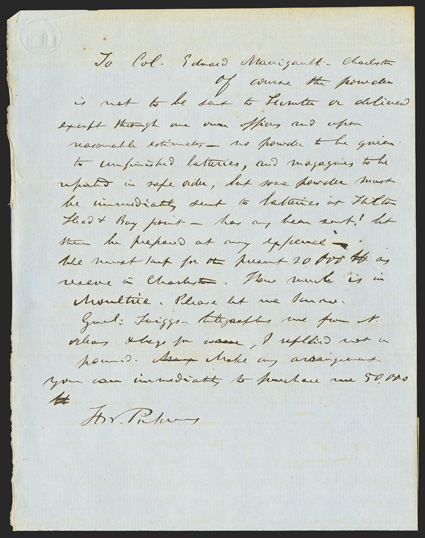 To Col. Edward Manigault - Charleston
Of course the powder
is not to be sent to Sumter or delivered
except through our own officers and upon
reasonable estimates - no powder to be given
to unfinished batteries, and magazines to be
reported in safe order, but some powder must
be immediately sent to batteries at Hilton
Head & Bay point - has any been sent! let
them be prepared at any expense -
We must keep for the present 20 000 lb as
reserve in Charleston. How much is in
Moultrie. Please let me know.
Genl: Twiggs telegraphs me from N
orleans & begs for some, I replied not a
pound. Make any arrangement
you can immediately to purchase me 50.000
lb
F W. Pickens